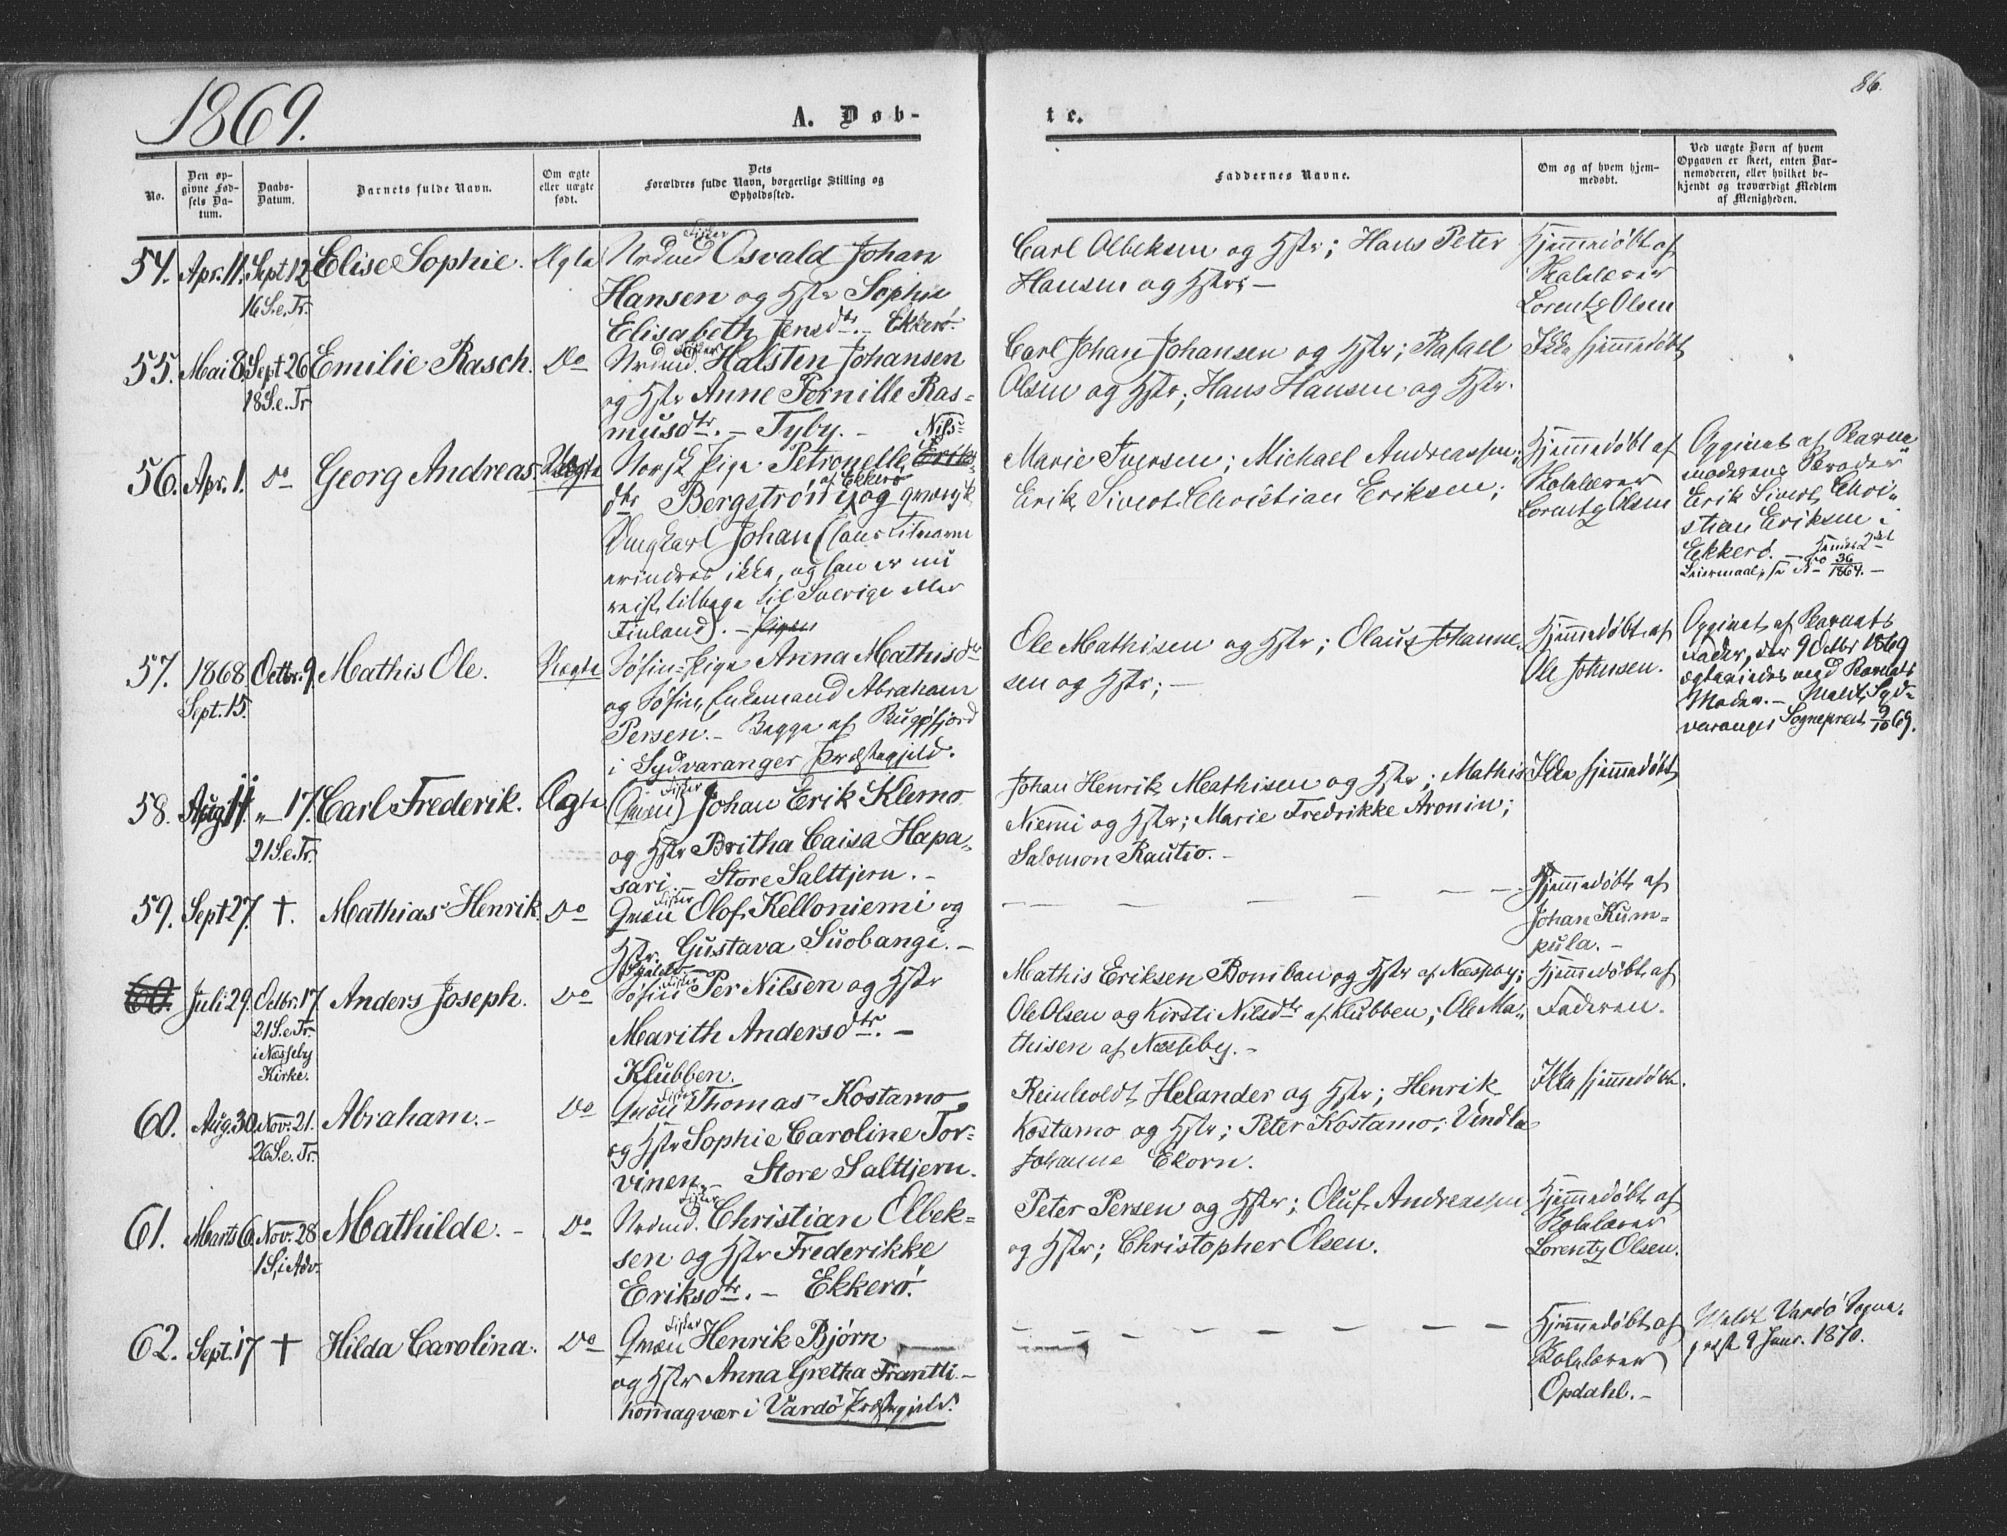 1869.
A. Døb-
te.
86.
No.
Den op-
givne Fød-
sels Da-
tum.
Daabs-
Datum.
Barnets fulde Navn.
Om ægte
eller uægte
født.
Dets
Forældres fulde Navn, borgerlige Stilling og
Opholdssted.
Faddernes Navne.
Om og af hvem hjem-
medøbt.
Ved uægte Børn af hvem
Opgaven er skeet, enten Bar-
nemoderen, eller hvilket be-
kjendt og troværdigt Medlem
af Menigheden.
54. Apr. 11. Sept 12 Elise Sophie. Ægte
16 S. e. Tr.
Fisker
Nordmd Osvald Johan
Hansen og Hstr Sophie
Elisabeth Jensdtr. – Ekkerö.
Carl Olbeksen og Hstr; Hans Peter
Hansen og Hstr; –
Hjemmedøbt af
Skolelærer
Lorentz Olsen
55. Mai 8. Sept 26 Emilie Rasch. Do
18 S. e. Tr
Fisker
Nordmd. Halsten Johansen
og Hstr Anne Pernille Ras=
musdtr. – Tyby. –
Carl Johan Johansen og Hstr; Rafael
Olsen og Hstr; Hans Hansen og Hstr.
Ikke hjemmedøbt
56. Apr. 1. do Georg Andreas. Uægte
Nils=
Norsk Pige Petronelle Eriks
af Ekkerö
dtr Bergström og qvænsk
Ungkarl Johan (hans Tilnavn
erindres ikke, og han er nu
reist tilbage til Sverige eller
Finland). – Pigen
Marie Iversen; Michael Andreassen;
Erik Sivert Christian Eriksen;
Hjemmedøbt af
Skolelærer
Lorentz Olsen
Opgivet af Barne
moderens Broder
Erik Sivert Chri=
stian Eriksen i
Ekkerö. – Hendes 2det
Leiermaal, se No 36/1864. –
57. 1868 Octbr. 9. Mathis Ole. Uægte
Sept. 15.
Søfin=Pige Anna Mathisdtr
og Søfin, Enkemand Abraham
Persen. – Begge af Bugöfjord
i Sydvaranger Præstegjeld.
Ole Mathisen og Hstr; Olaus Johanne=
sen og Hstr; –
Hjemmedøbt af
Ole Johnsen.
Opgivet af Barnets
Fader, der 9 Octbr 1869
ægteviedes med Barnets
Moder. – Meldt Syd=
varanger Sognepræst 9/10 69.
58. Aug 11 " – 17. Carl Frederik. Ægte
21 S. e. Tr.
Fisker
(Qvæn) Johan Erik Klemo
og Hstr Britha Caisa Hapa=
sari. – Store Salttjern. –
Johan Henrik Mathisen og Hstr; Mathis
Niemi og Hstr; Marie Fredrikke Aronin;
Salomon Rautio. –
Ikke hjemmedøbt
59. Sept 27. †. Mathias Henrik. Do
Fisker
Qvæn Olof Kelloniemi og
Hstr. Gustava Suobangi. –
Hjemmedøbt af
Johan Kum=
pula. –
60. Juli 29. Octbr. 17 Anders Joseph. Do
21 S. e. Tr.
i Næsseby
Kirke.
Fisker
Søfin Per Nilsen og Hstr
Marith Andersdtr. –
Klubben.
Mathis Eriksen Boniban og Hstr af Næsseby;
Ole Olsen og Kirsti Nilsdtr af Klubben; Ole Ma=
thisen af Næsseby. –
Hjemmedøbt af
Faderen.
60. Aug. 30. Nov. 21. Abraham. – Do
26 S. e. Tr.
Fisker
Qvæn Thomas Kostamo
og Hstr Sophie Caroline Tor=
vinen. – Store Salttjern.
Reinholdt Helander og Hstr; Henrik
Kostamo og Hstr; Peter Kostamo; Vendla
Johanne Ekorn.
Ikke hjemmedøbt.
61. Marts 6. Nov. 28 Mathilde. – Do
1 S. i Adv.
Fisker
Nordmd. Christian Olbek=
sen og Hstr Frederikke
Eriksdtr. – Ekkerö.
Peter Persen og Hstr; Oluf Andreassen
og Hstr; Christopher Olsen.
Hjemmedøbt af
Skolelærer
Lorentz Olsen.
62. Sept. 17 † Hilda Carolina. Do
Fisker
Qvæn Henrik Bjørn
og Hstr Anna Gretha Frantti –
homagvær i Vardö Præstegjeld.
Hjemmedøbt af
Skolelærer
Opdahl. –
Meldt Vardö Sogne=
præst 9 Janr. 1870.